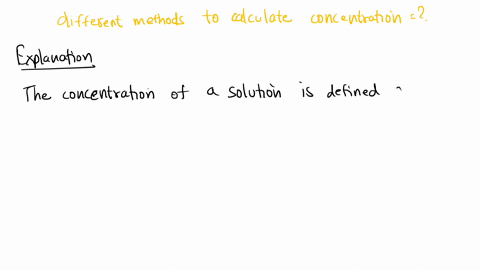 different methods to calculate concentration =?
Explanation
The concentration of a solution is defined